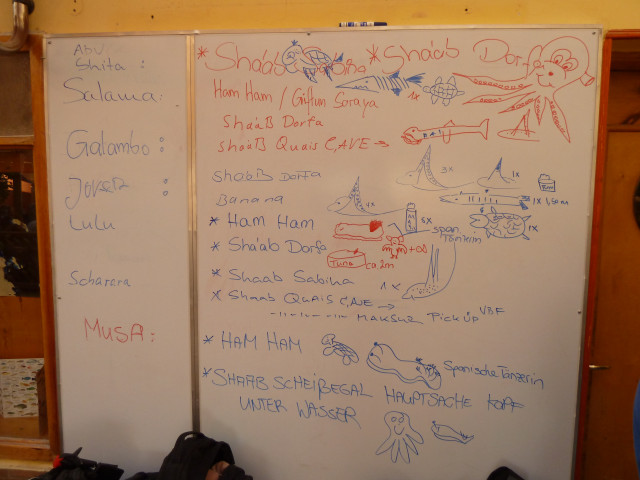 Abu
Shita :
Salama :
Galambo :
:
Lulu
Soharara
Musa :
* Shaab * Shaab Dorfa
Ham Ham / Giftun Soraya 1x
Shaab Dorfa
Shaab Quais CAVE →
Shaab Dorfa 3x 1x
Banana 4x 1x 1,50m
* Ham Ham 5x 1x
span. Tänzerin
* Shaab Dorfa +OO
Tuna ca 2m
* Shaab Sabina 1x
x Shaab Quais CAVE →
-11- -11- -11- MAKSUR PICKUP VBF
* HAM HAM Spanische Tänzerin
* SHAAB SCHEIßEGAL HAUPTSACHE KOPF
UNTER WASSER